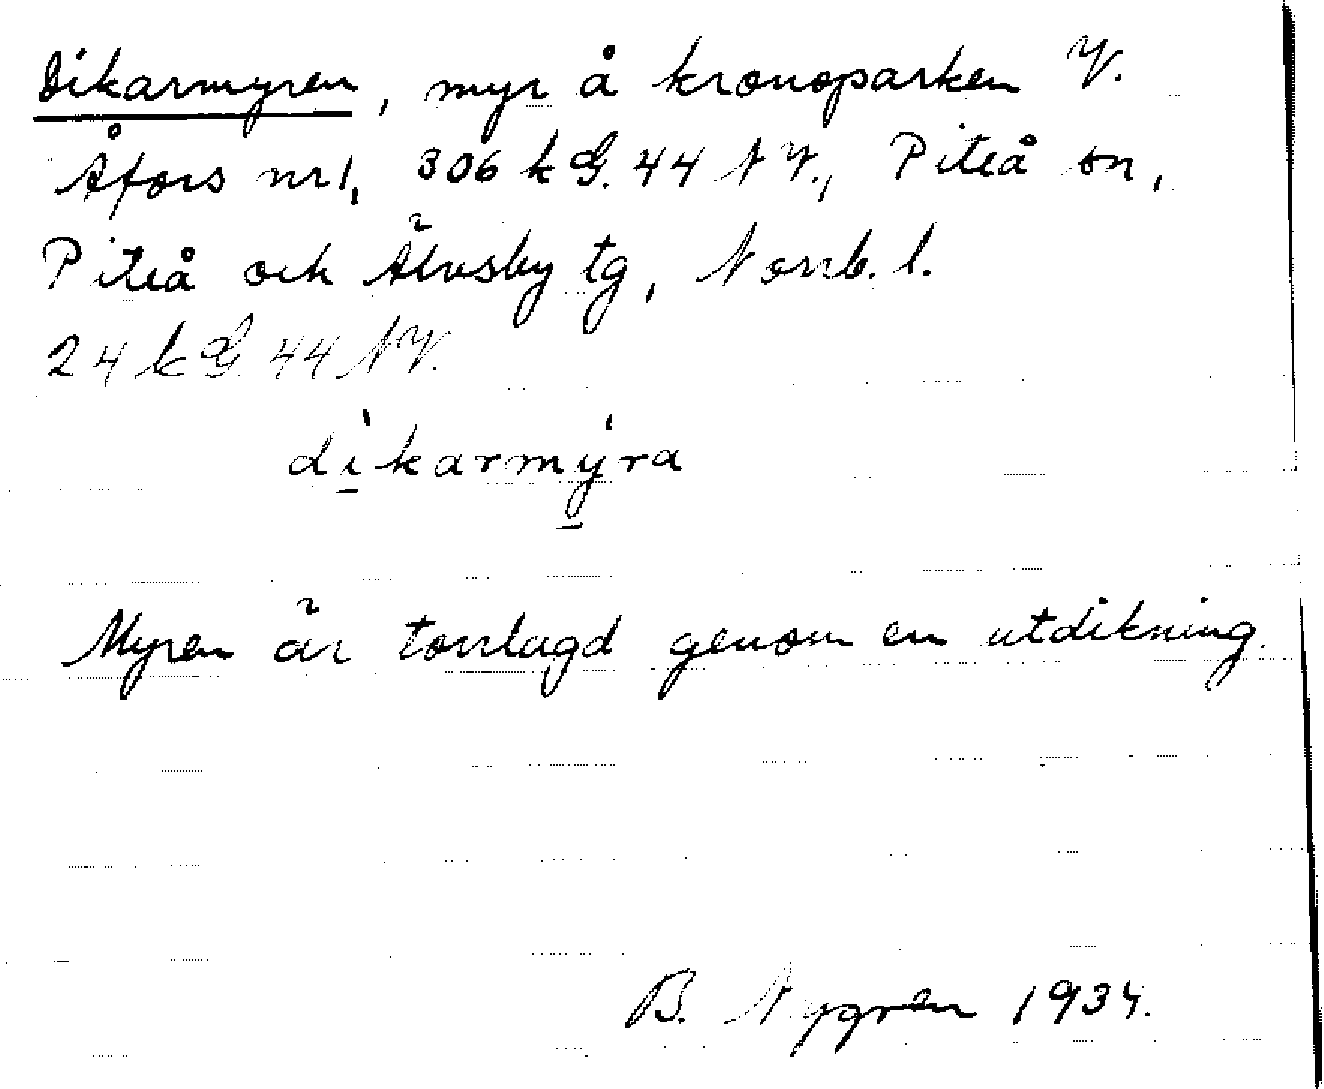 Dikarmyren, myr å kronoparken V.
Åfors nr 1, 306 k G. 44 N V., Piteå sn,
Piteå och Älvsby tg, Norrb. l.
24 k G. 44 N V.
dikarmyra
Myren är torrlagd genom en utdikning.
B. Nygren 1934.